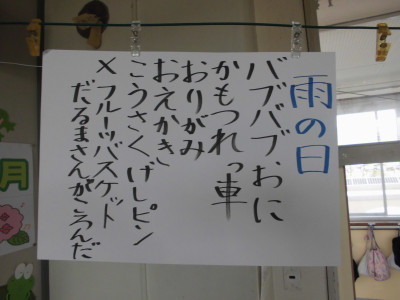 雨の日
バブバブ.おに
かもつれっ車
おりがみ
おえかき、
こうさく、けしピン
× フルーツバスケット
だるまさんがころんだ
月